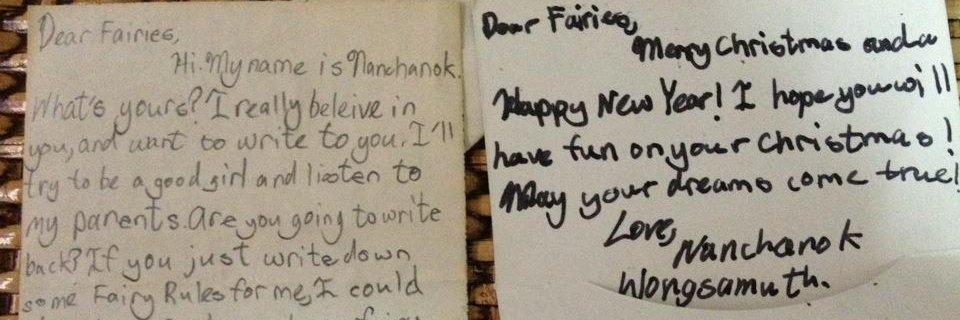 Dear Fairies,
Hi. My name is Nanchanok.
What's yours? I really beleive in
you, and want to write to you. I'll
try to be a good girl and listen to
my parents. Are you going to write
back? If you just write down
some Fairy Rules for me, I could
Dear Fairies,
Merry Christmas and a
Happy New Year! I hope you will
have fun on your Christmas!
May your dreams come true!
Love,
Nanchanok
Wongsamuth.